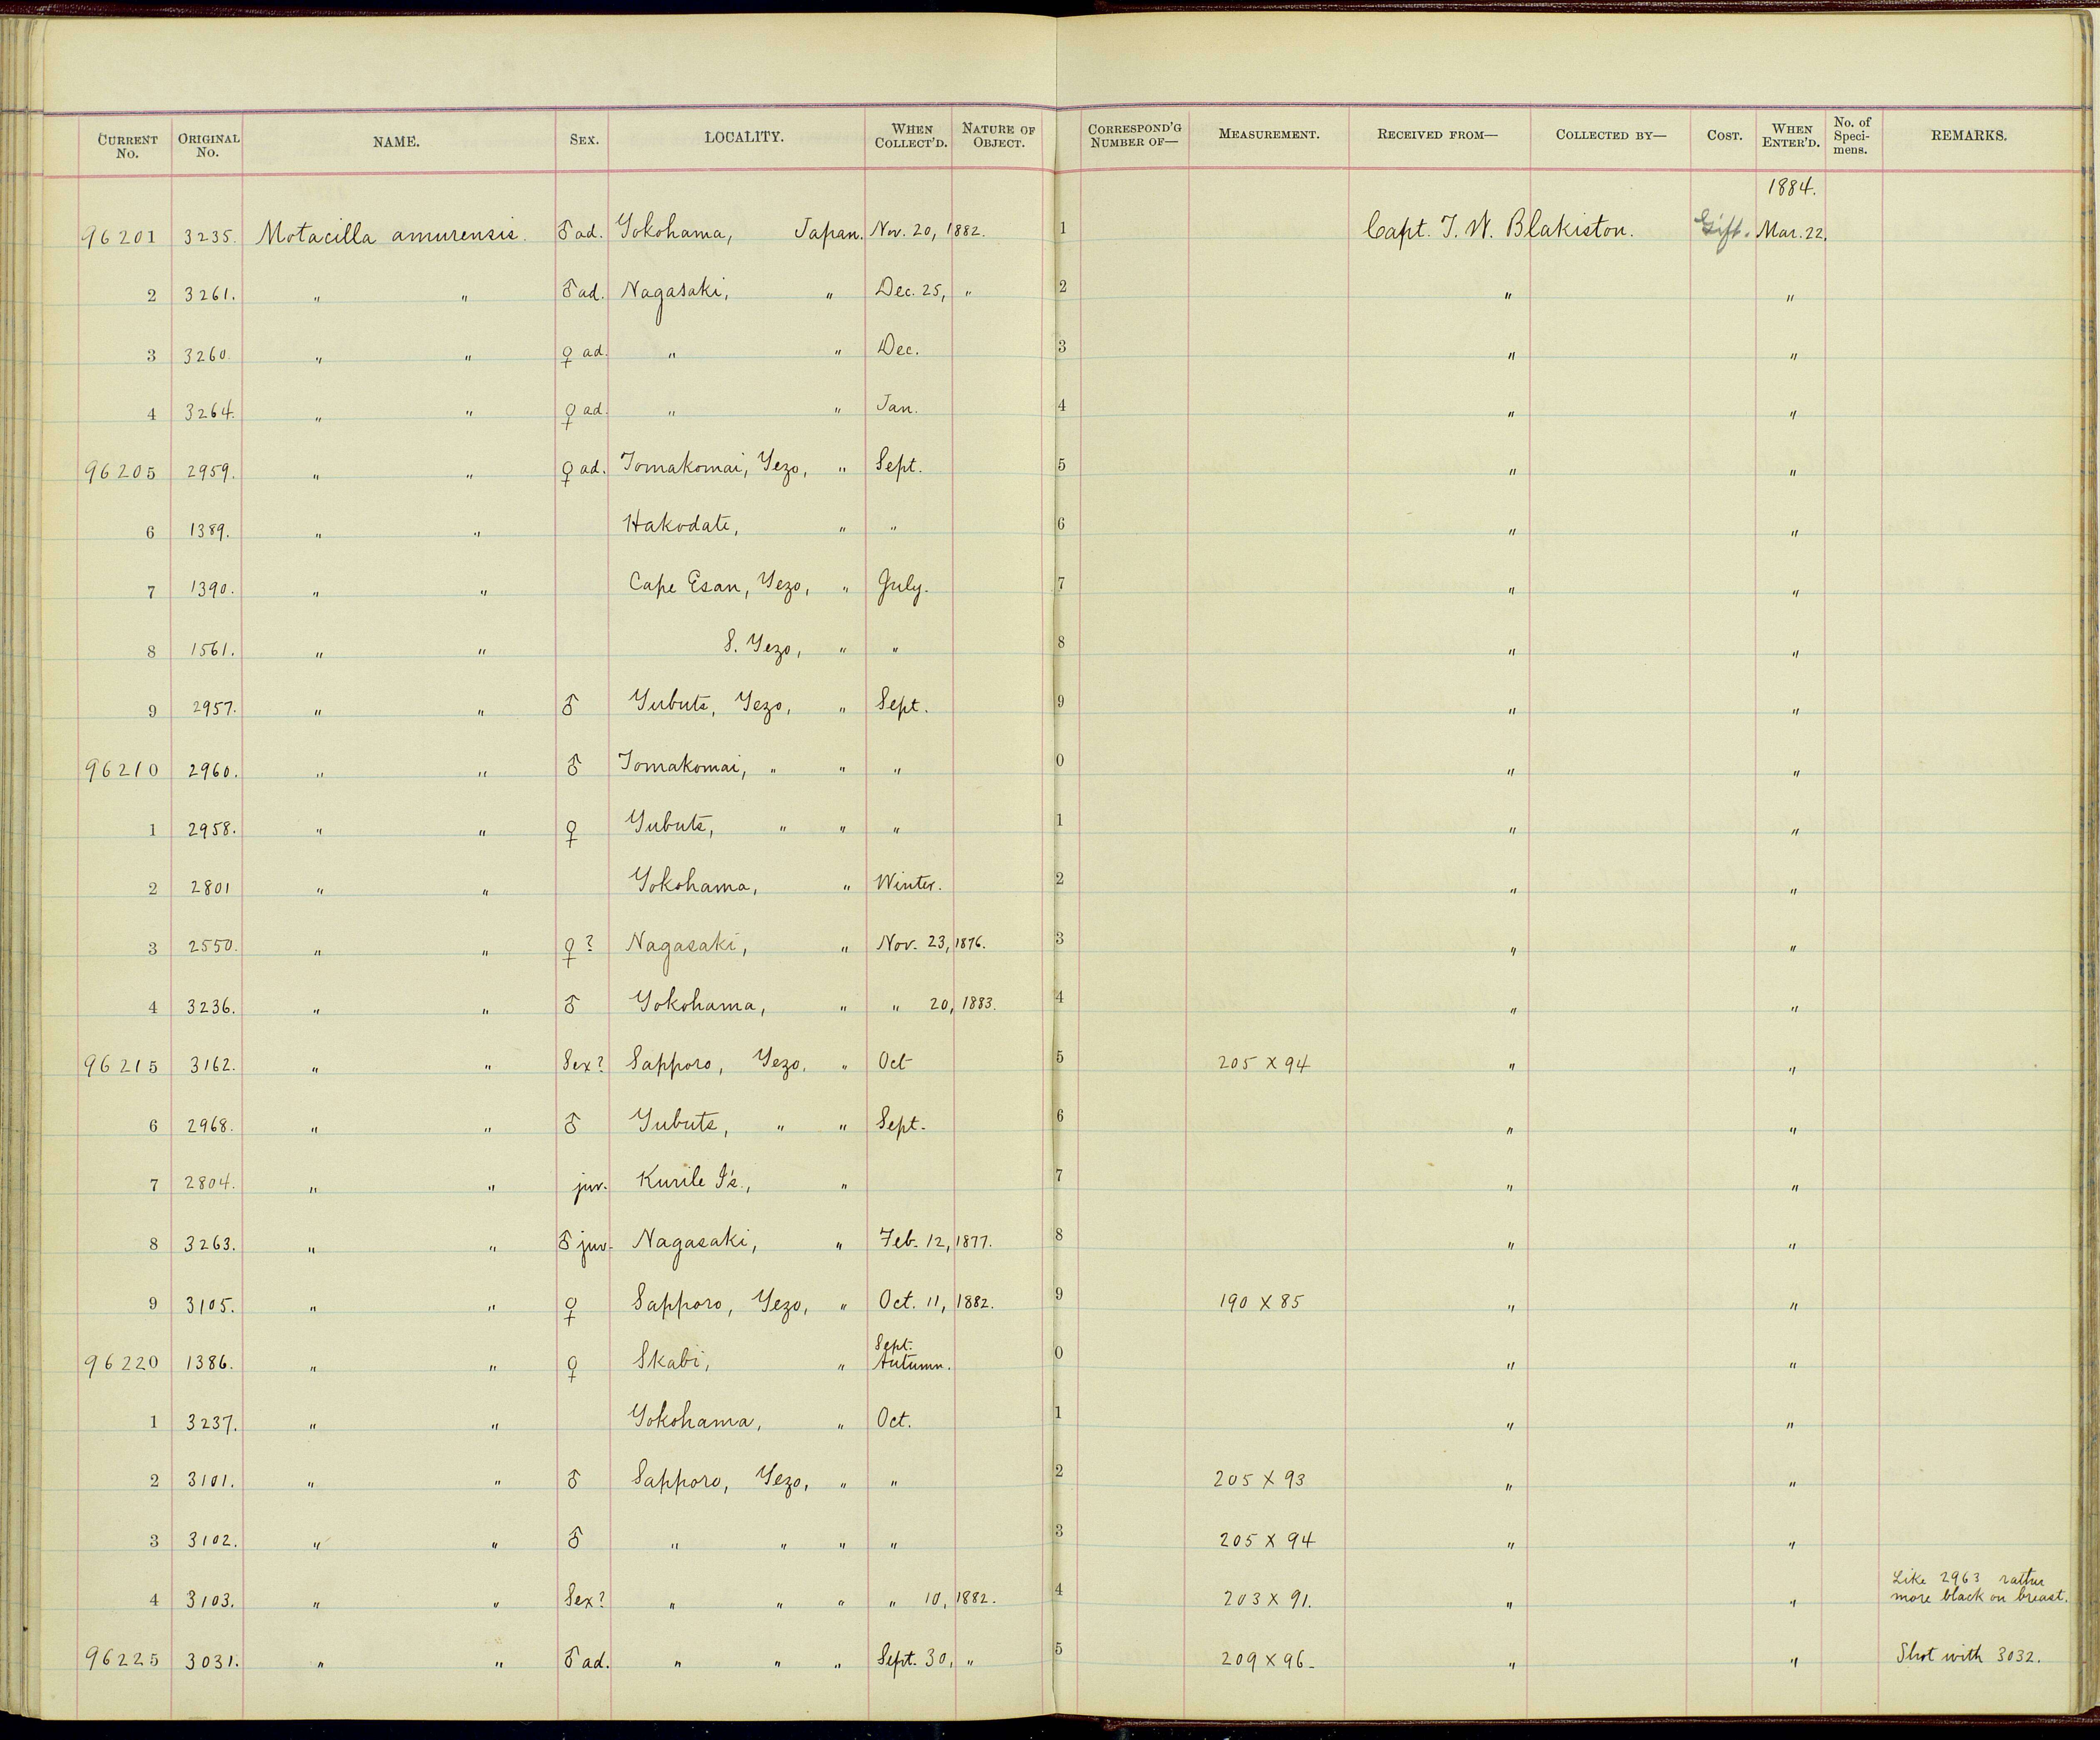 CURRENT No. ORIGINAL No. NAME. SEX. LOCALITY. WHEN COLLECT'D. NATURE OF OBJECT. CORRESPOND'G NUMBER OF— MEASUREMENT. RECEIVED FROM— COLLECTED BY— COST. WHEN ENTER'D. No. of Speci-mens. REMARKS.
1884.
96201 3235. Motacilla amurensis. ♂ ad. Yokohama, Japan. Nov. 20, 1882. 1 Capt. T. W. Blakiston. Gift. Mar. 22.
2 3261. " " ♂ ad. Nagasaki, " Dec. 25, " 2 " "
3 3260. " " ♀ ad. " " Dec. 3 " "
4 3264. " " ♀ ad. " " Jan. 4 " "
96205 2959. " " ♀ ad. Tomakomai, Yezo, " Sept. 5 " "
6 1389. " " Hakodate, " " 6 " "
7 1390. " " Cape Esan, Yezo, " July. 7 " "
8 1561. " " S. Yezo, " " 8 " "
9 2957. " " ♂ Yubuts, Yezo, " Sept. 9 " "
96210 2960. " " ♂ Tomakomai, " " " 0 " "
1 2958. " " ♀ Yubuts, " " " 1 " "
2 2801 " " Yokohama, " Winter. 2 " "
3 2550. " " ♀ ? Nagasaki, " Nov. 23, 1876. 3 " "
4 3236. " " ♂ Yokohama, " " 20, 1883. 4 " "
96215 3162. " " Sex? Sapporo, Yezo, " Oct 5 205 X 94 " "
6 2968. " " ♂ Yubuts, " " Sept. 6 " "
7 2804. " " juv. Kurile I's., " 7 " "
8 3263. " " ♂ juv. Nagasaki, " Feb. 12, 1877. 8 " "
9 3105. " " ♀ Sapporo, Yezo, " Oct. 11, 1882. 9 190 X 85 " "
96220 1386. " " ♀ Skabi, " Sept. Autumn. 0 " "
1 3237. " " Yokohama, " Oct. 1 " "
2 3101. " " ♂ Sapporo, Yezo, " " 2 205 X 93 " "
3 3102. " " ♂ " " " " 3 205 X 94 " "
4 3103. " " Sex? " " " " 10, 1882. 4 203 X 91. " " Like 2963 rather
more black on breast.
96225 3031. " " ♂ ad. " " " Sept. 30, " 5 209 X 96. " " Shot with 3032.